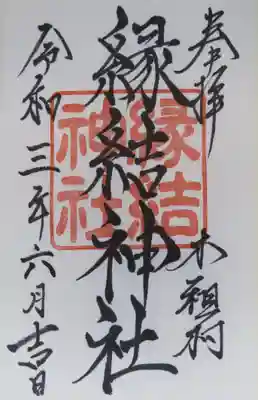 奉拝
木祖村
縁結神社
縁結
神社
令和三年六月吉日